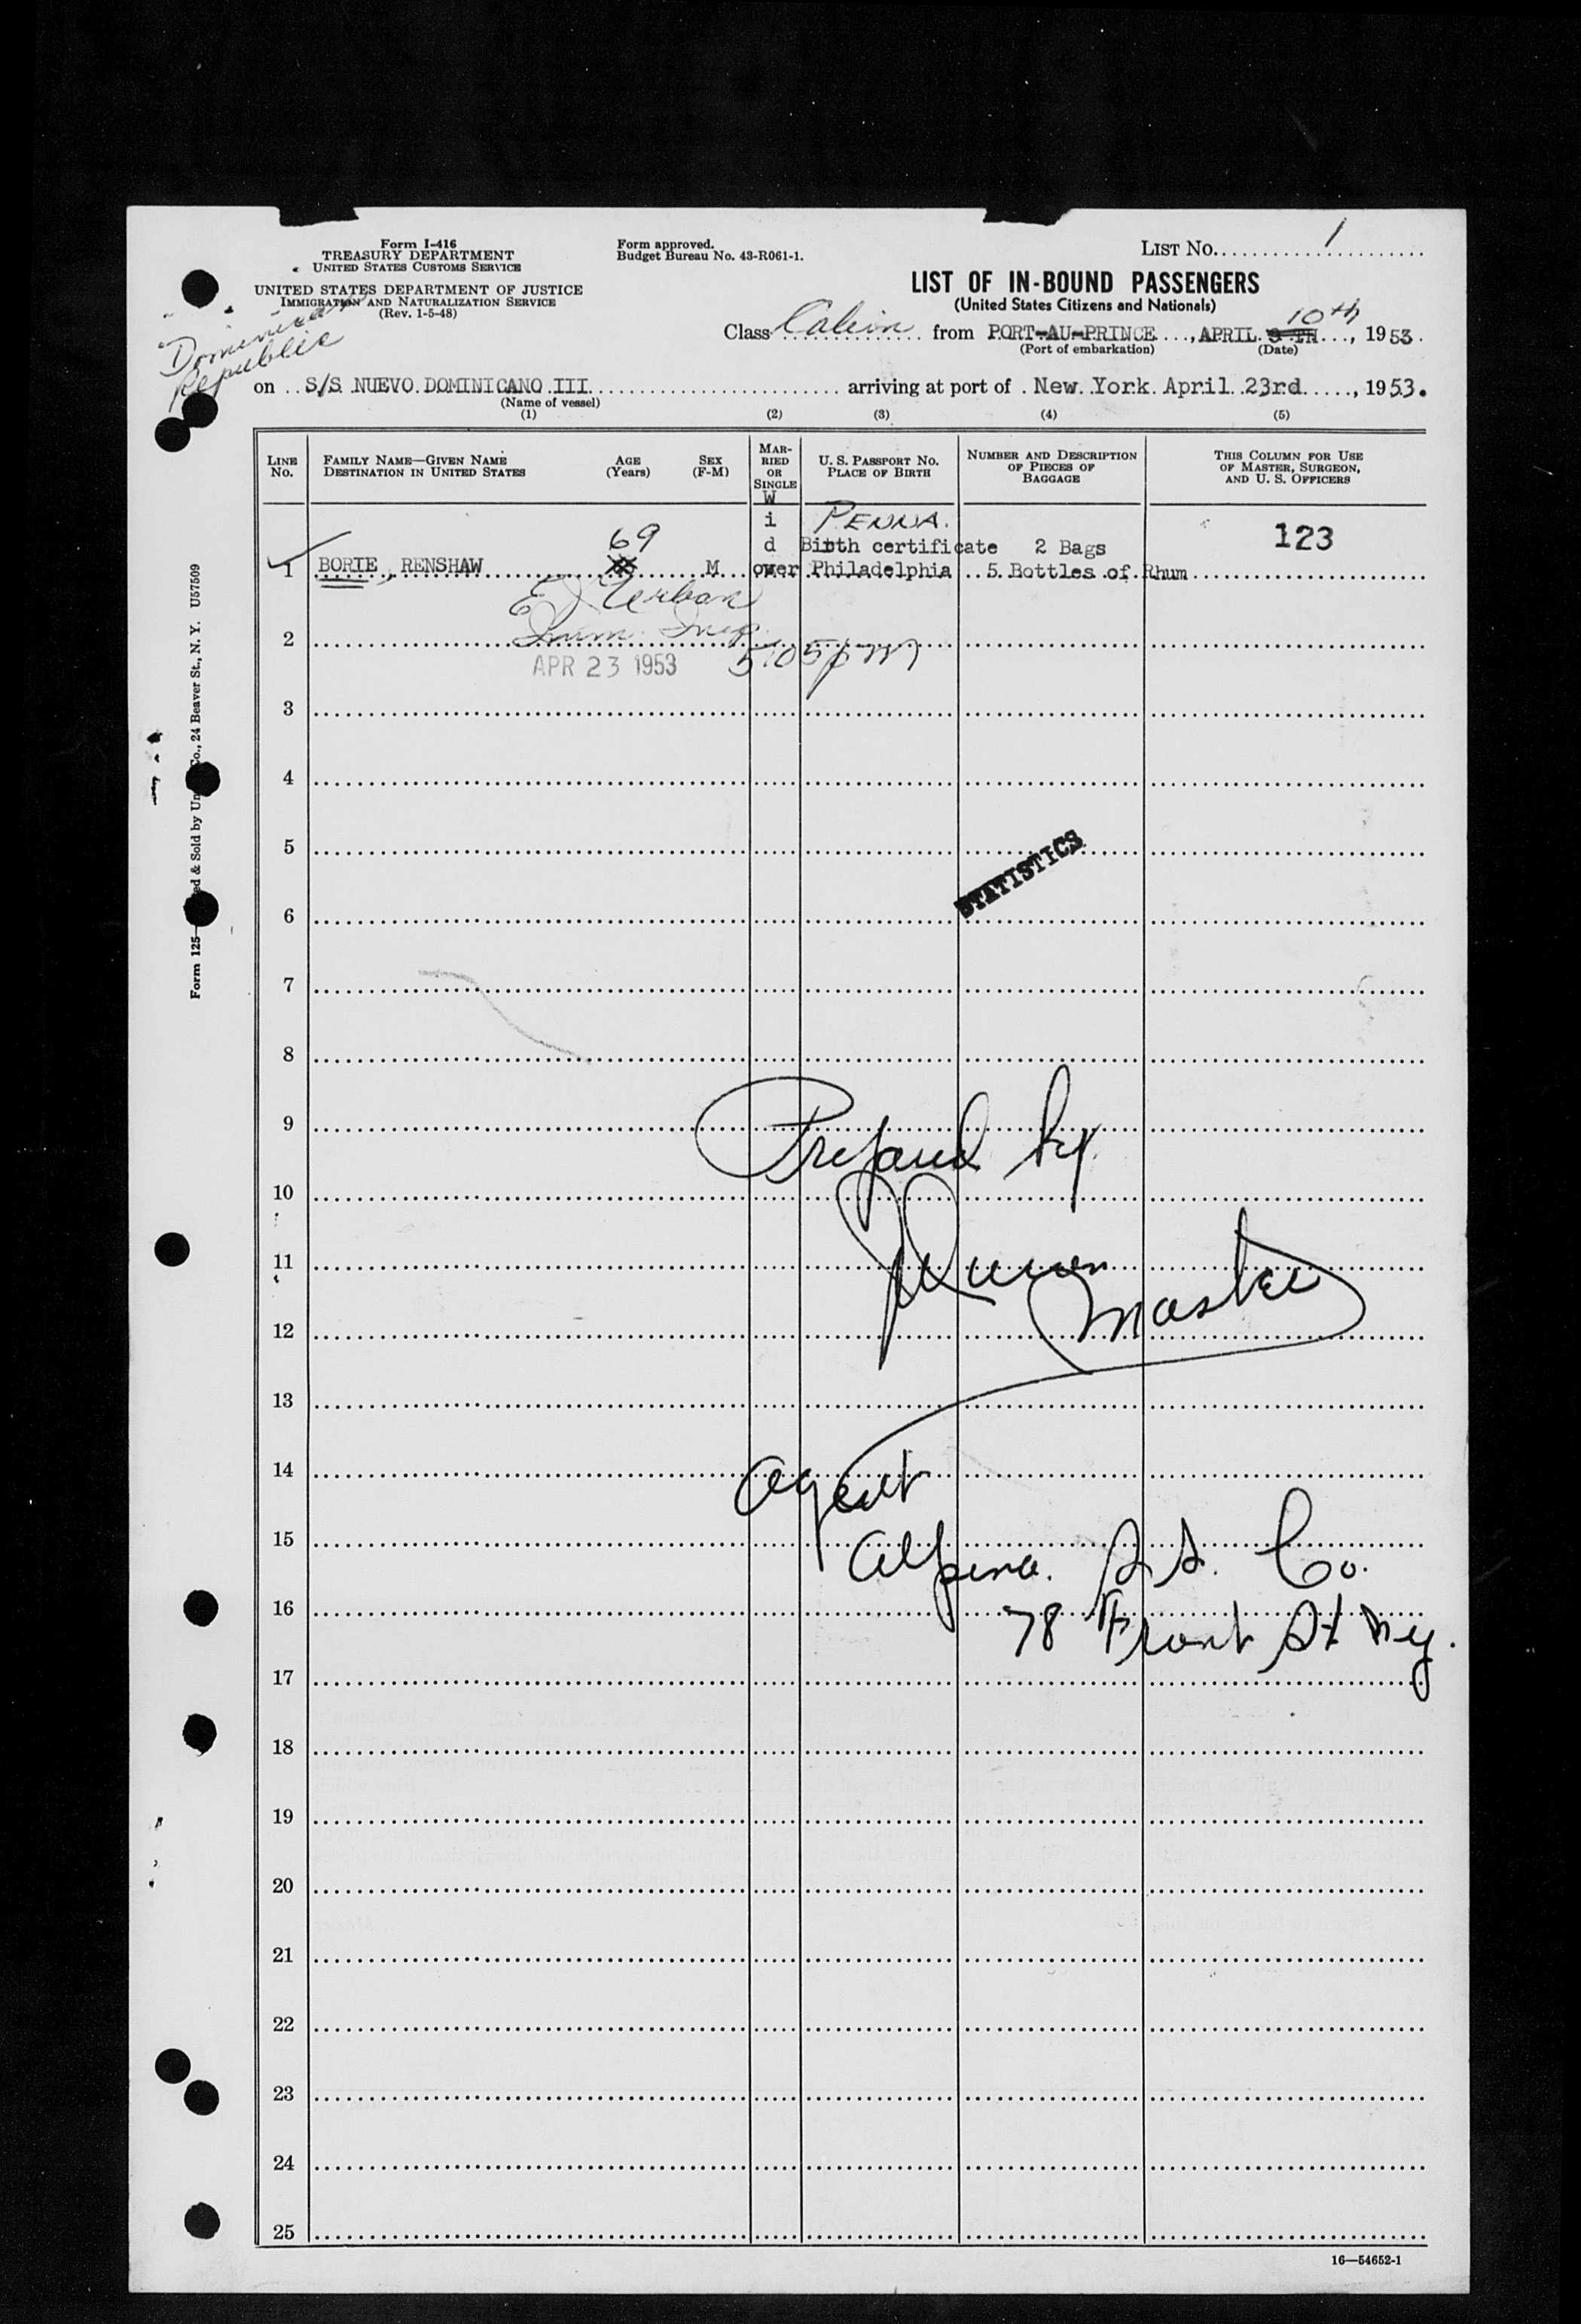 Form I-416
TREASURY DEPARTMENT
UNITED STATES CUSTOMS SERVICE
UNITED STATES DEPARTMENT OF JUSTICE
IMMIGRATION AND NATURALIZATION SERVICE
(Rev. 1-5-48)
Form approved.
Budget Bureau No. 43-R061-1.
LIST NO. 1
LIST OF IN-BOUND PASSENGERS
(United States Citizens and Nationals)
Dominican
Republic
10th
Class Cabin from PORT-AU-PRINCE, APRIL 9 TH, 1953.
(Port of embarkation) (Date)
on S/S NUEVO DOMINICANO III arriving at port of New York April 23rd, 1953.
(Name of vessel)
(1) (2) (3) (4) (5)
LINE No.
FAMILY NAME—GIVEN NAME
DESTINATION IN UNITED STATES
AGE
(Years)
SEX
(F-M)
MARRIED OR SINGLE
U. S. PASSPORT NO.
PLACE OF BIRTH
NUMBER AND DESCRIPTION OF PIECES OF BAGGAGE
THIS COLUMN FOR USE OF MASTER, SURGEON, AND U. S. OFFICERS
W
i PENNA.
69 d Birth certificate 2 Bags 123
1 BORIE, RENSHAW M ower Philadelphia 5 Bottles of Rhum
E J Urban
2 Imm. Insp.
APR 23 1953 5:05 pm
3
4
5
STATISTICS
6
7
8
9
Prepared by
10
11
Master
12
13
14
Agent
15
Alpina S.S. Co.
16
78 Front St N.Y.
17
18
19
20
21
22
23
24
25
16—54652-1
Form 125
ed & Sold by Un
Co., 24 Beaver St., N. Y. U57509